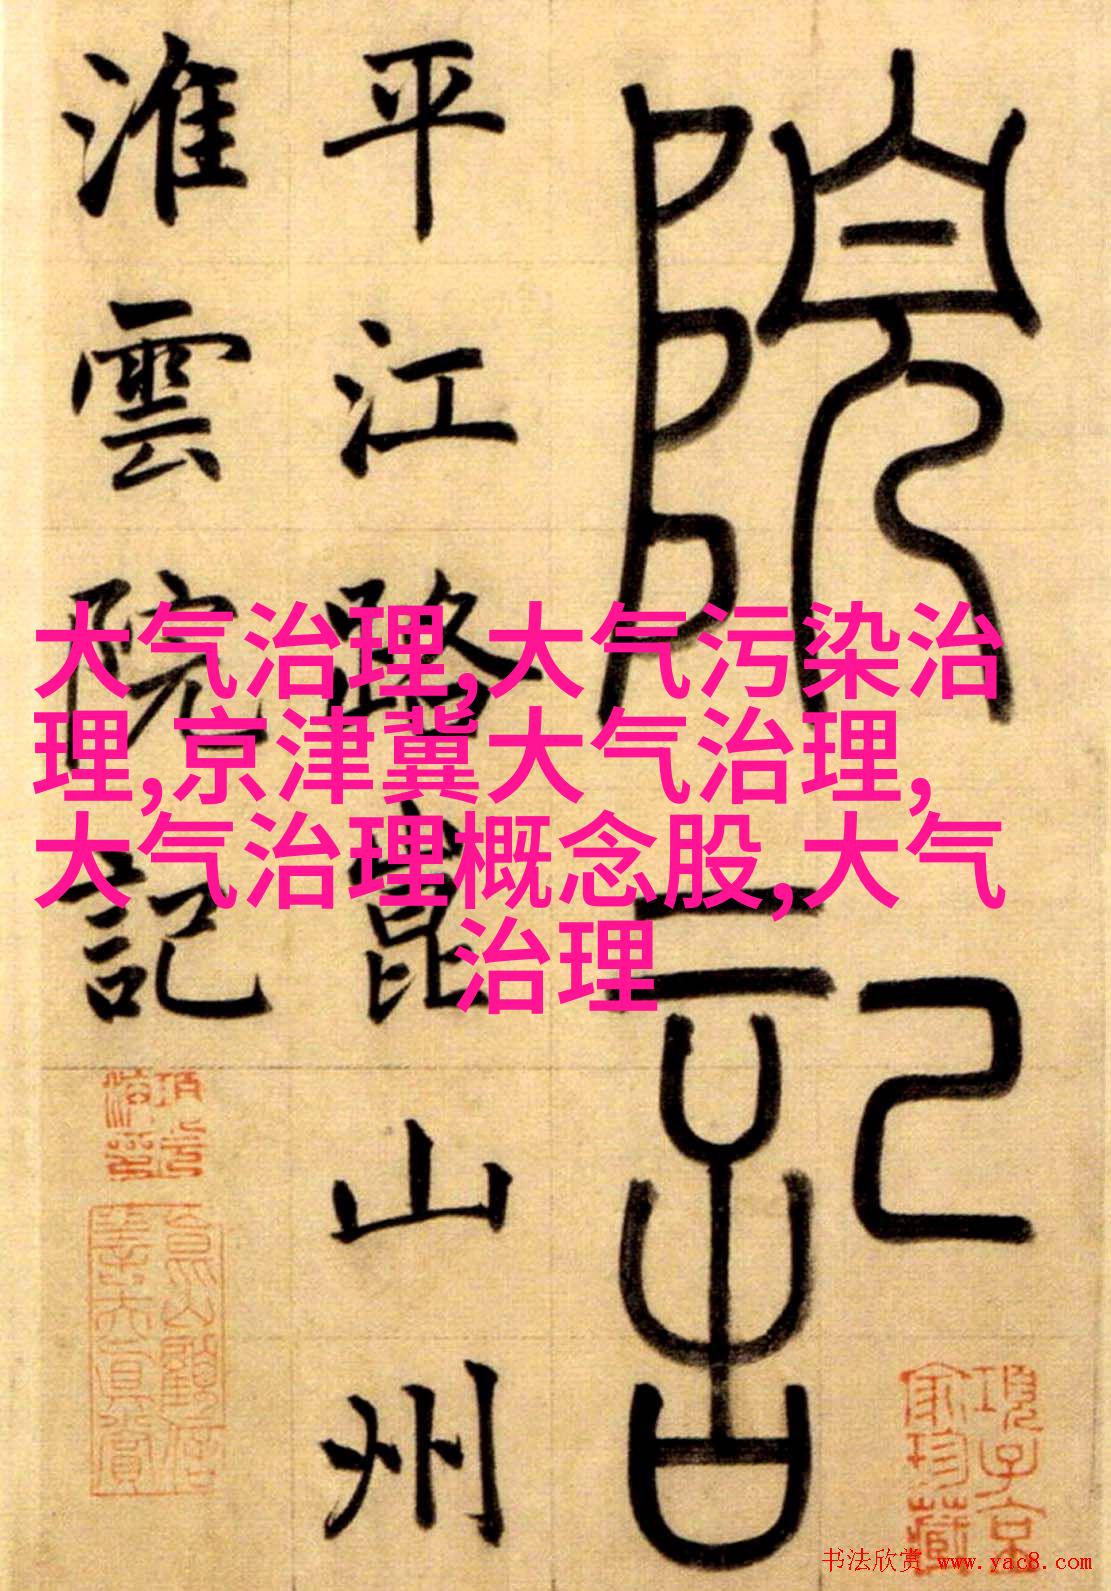 院記
平江路崑山州
淮雲院記
大气治理,大气污染治
理,京津冀大气治理,
大气治理概念股,大气
治理
項子京
書法欣赏 www.yac8.com